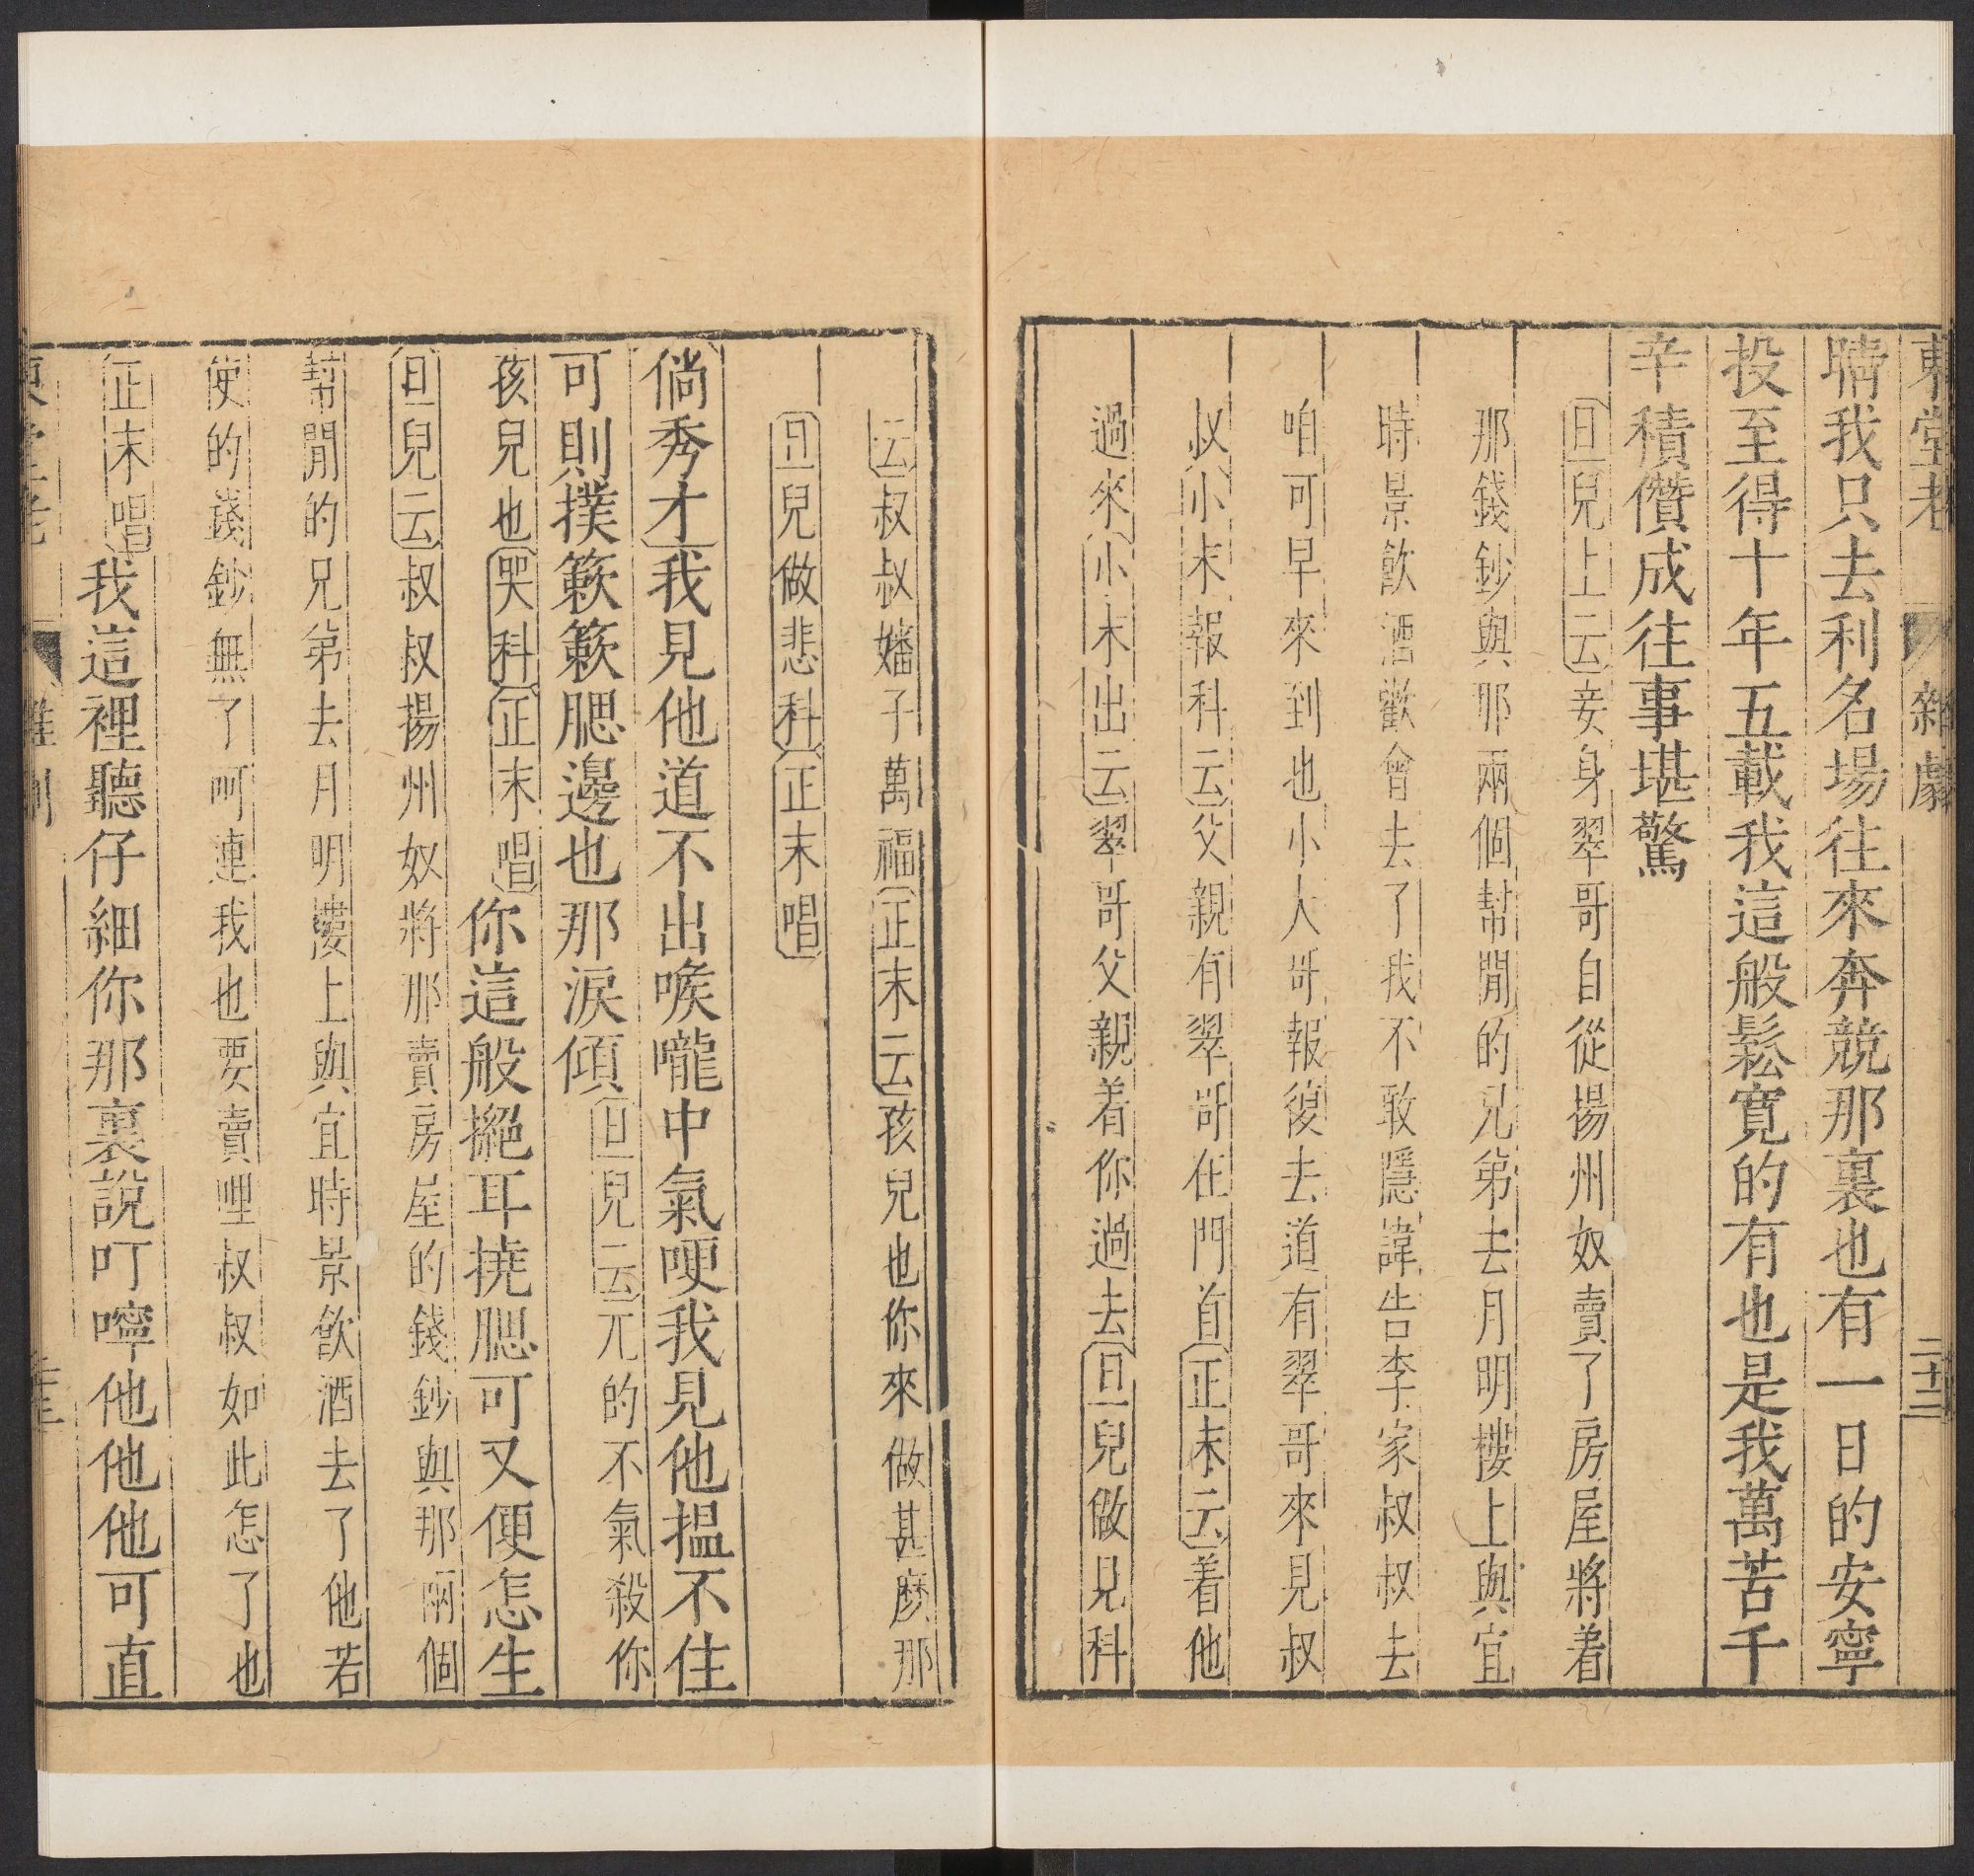 東堂老 雜劇 二十二
睛我只去利名場往來奔競那裏也有一日的安寧
投至得十年五載我這般鬆寬的有也是我萬苦千
辛積儹成往事堪驚
旦兒上云妾身翠哥自從揚州奴賣了房屋將着
那錢鈔與那兩個幇閒的兄弟去月明樓上與宜
時景飲酒歡會去了我不敢隱諱告李家叔叔去
咱可早來到也小大哥報復去道有翠哥來見叔
叔小末報科云父親有翠哥在門首正末云着他
過來小末出云翠哥父親着你過去旦兒做見科
云叔叔嬸子萬福正末云孩兒也你來做甚麽那
旦兒做悲科正末唱
倘秀才我見他道不出喉嚨中氣哽我見他搵不住
可則撲簌簌腮邊也那淚傾旦兒云兀的不氣殺你
孩兒也哭科正末唱你這般撧耳撓腮可又便怎生
旦兒云叔叔揚州奴將那賣房屋的錢鈔與那兩個
幇閒的兄弟去月明樓上與宜時景飲酒去了他若
使的錢鈔無了呵連我也要賣哩叔叔如此怎了也
正末唱我這裡聽仔細你那裏說叮嚀他他他可直
東堂老 雜劇